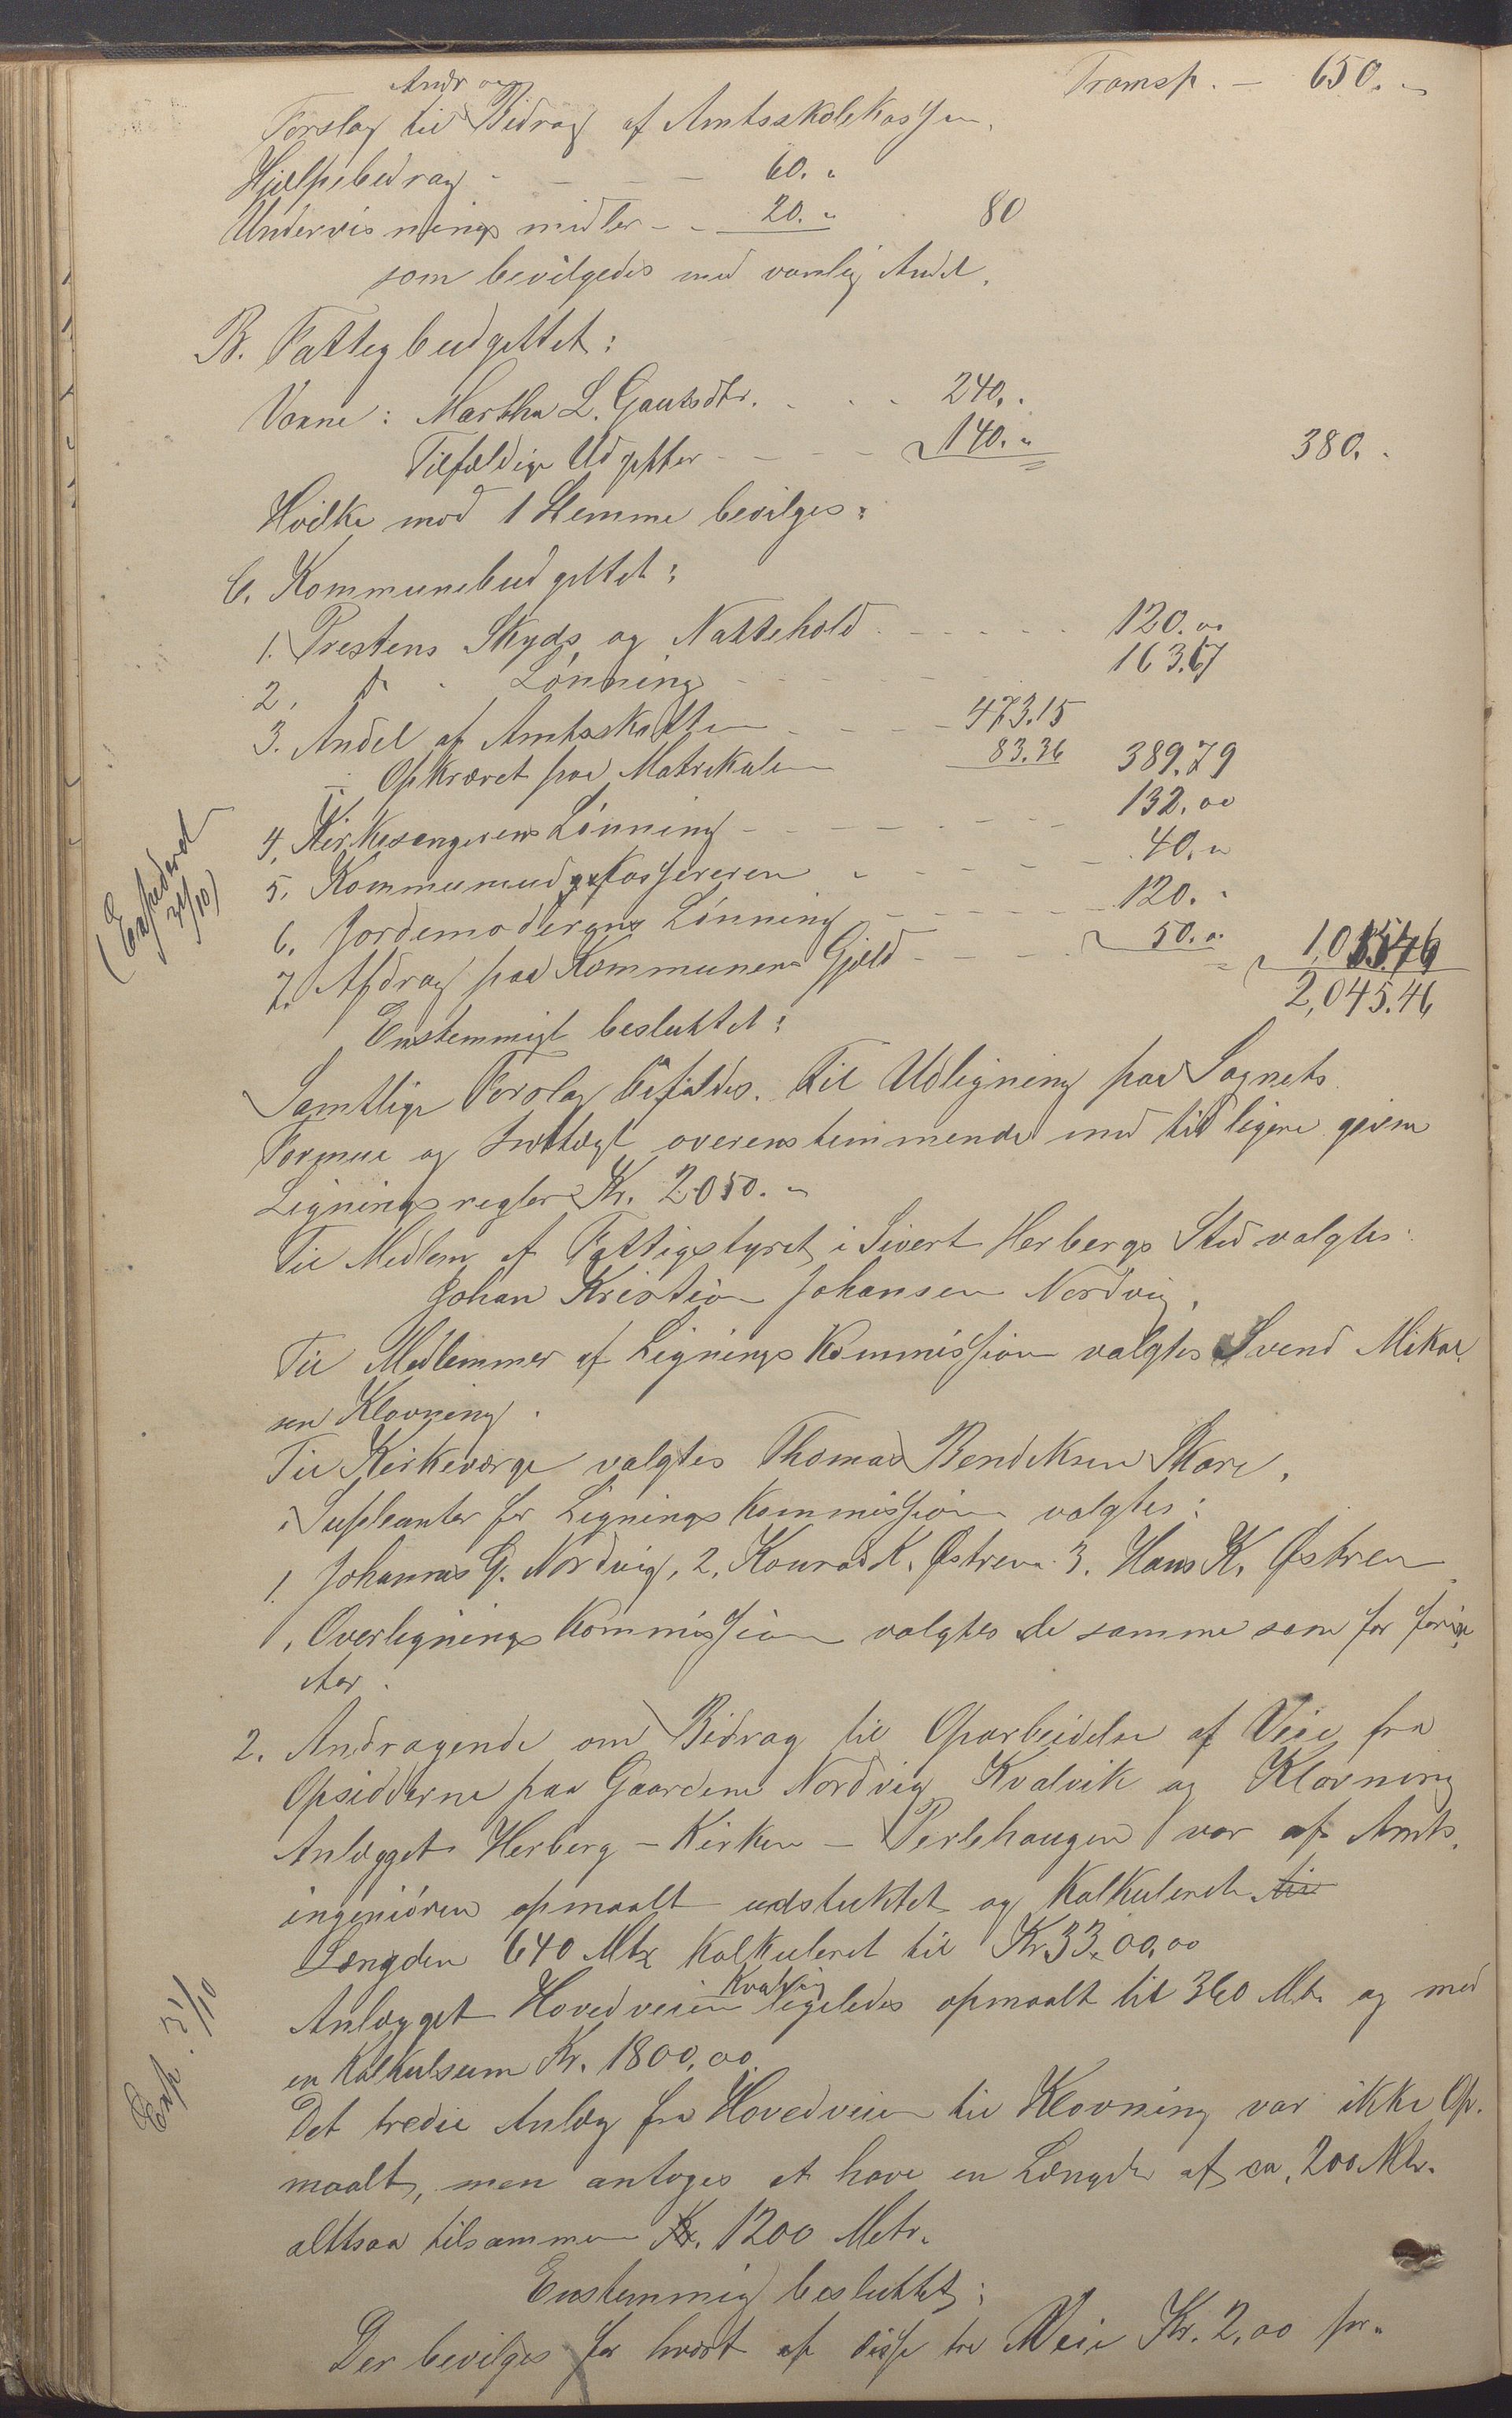 Transp. — 650. "
Andrag
Forslag til Bidrag af Amtsskolekassen.
Hjælpebidrag - — — — 60. "
Undervisningsmidler - - 20. " 80
som bevilgedes med vanlig Andel.
B. Fattigbudgettet:
Voxne: Martha L. Gautsdtr. . . . 240. "
Tilfældige Udgifter - - - - 140. " 380. "
Hvilke mod 1 Stemme bevilges.
C. Kommunebudgettet:
1. Prestens Skyds og Nattehold - - - - - 120.00
2. do. Lønning - - - - - 163.67
3. Andel af Amtsskatten - - - 473.15
÷ Opkrævet paa Matrikulen 83.36 389.79
4. Kirkesangerens Lønning - - - - - 132.00
5. Kommuneudgkassereren " - - - 40. "
6. Jordemoderens Lønning - - - - - 120. "
7. Afdrag paa Kommunens Gjæld - - - - 50. " 1,015.46
2,045.46
(Expederet
31/10)
Enstemmigt besluttet:
Samtlige Forslag bifaldes. Til Udligning paa Sognets
Formue og Indtægt overensstemmende med tidligere givne
Ligningsregler Kr. 2050. "
Til Medlem af Fattigstyret i Sivert Herbergs Sted valgtes:
Johan Kristian Johansen Nordvig.
Til Medlemmer af Ligningskommissionen valgtes Svend Mikal
sen Klovning.
Til Kirkeværge valgtes Thomas Bendiksen Skare.
i Supleanter for Ligningskommissionen valgtes:
1. Johannes G. Nordvig, 2. Konrad K. Østrem 3. Hans K. Østrem
i Overligningskommissionen valgtes de samme som for forrige
Aar.
2. Andragende om Bidrag til Oparbeidelse af Veie fra
Opsidderne paa Gaardene Nordvig Kvalvik og Klovning
Anlægget Herberg – Kirken – Perlehaugen var af Amts
ingeniøren opmaalt udstukket og kalkuleret til
Længden 640 Mtr kalkuleret til Kr. 33,00,00
Kvalvig
Anlægget Hovedveien ligeledes opmaalt til 360 Mtr. og med
en Kalkulsum Kr. 1800,00.
Exp. 31/10
Det tredie Anlæg fra Hovedveien til Klovning var ikke Op-
maalt, men antoges at have en Længde af ca. 200 Mtr.
alttsaa tilsammen Kr. 1200 Metr.
Enstemmig besluttet:
Der bevilges for hvert af disse tre Veie Kr. 2,00 pr.